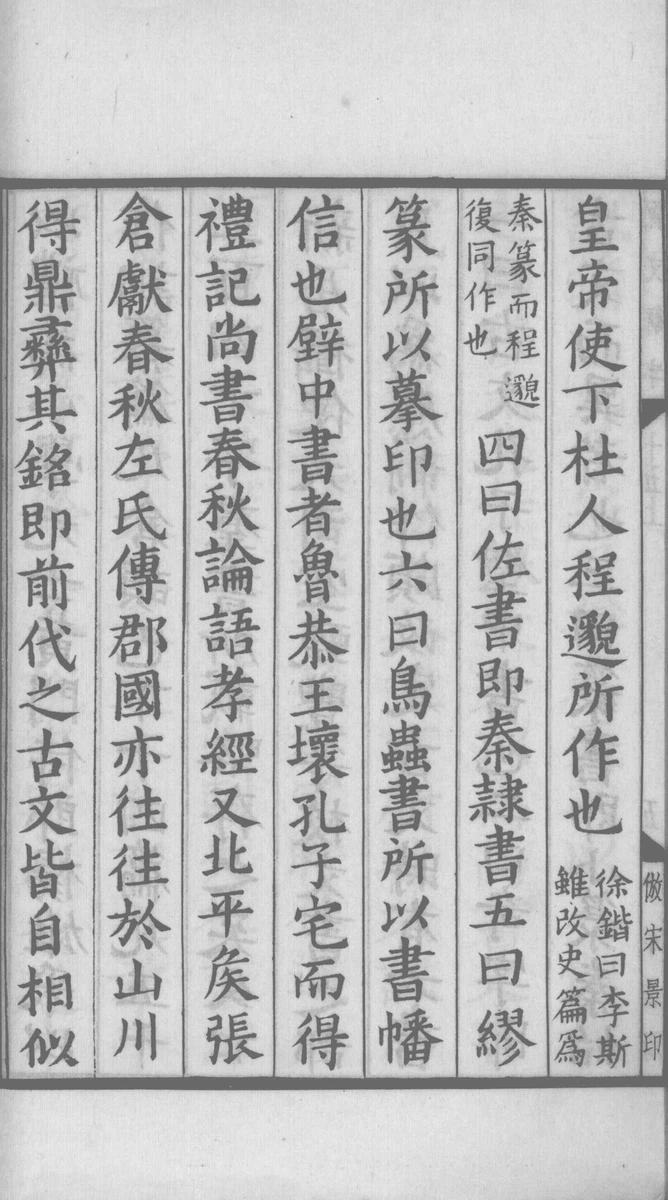 皇帝使下杜人程邈所作也徐鍇曰李斯雖改史篇爲
秦篆而程邈復同作也四曰佐書即秦隷書五曰繆
篆所以摹印也六曰鳥蟲書所以書幡
信也壁中書者魯恭王壞孔子宅而得
禮記尚書春秋論語孝經又北平矦張
倉獻春秋左氏傳郡國亦往往於山川
得鼎彝其銘即前代之古文皆自相似
倣宋景印